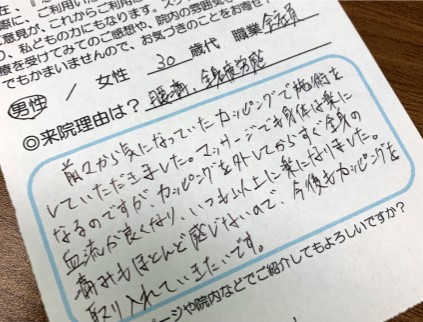 意見が、これからご利用に
り、私どもの力にもなります。
療を受けてみてのご感想や、院内の雰囲気
でもかまいませんので、お気づきのことをお寄せ
男性 / 女性 30 歳代 職業 会社員
◎来院理由は? 腰痛、全身疲労感
前々から気になっていたカッピングで施術を
していただきました。マッサージでも身体は楽に
なるのですが、カッピングを外してからすぐ全身の
血流が良くなり、いつも以上に楽になりました。
痛みもほとんど感じないので、今後もカッピングを
取り入れていきたいです。
ページや院内などでご紹介してもよろしいですか?